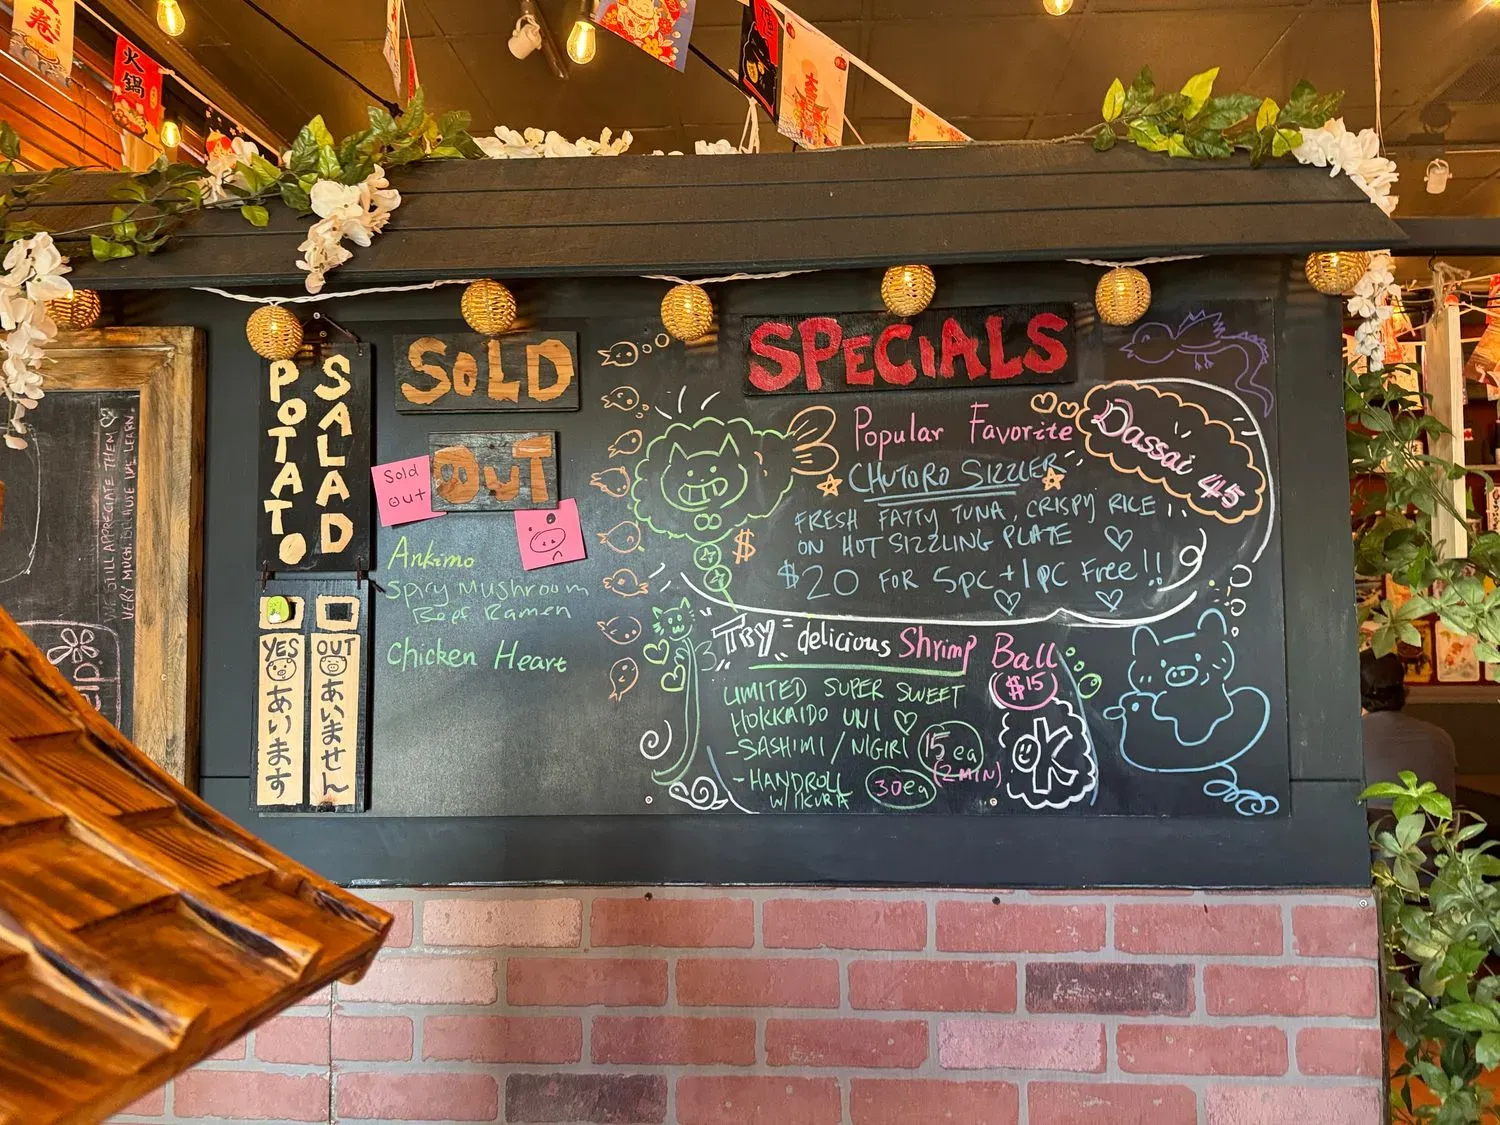 火鍋
WE STILL APPRECIATE THEM ♡
VERY MUCH BECAUSE WE LEARN
POTATO
SALAD
YES
あります
OUT
ありません
SOLD
OUT
Sold
out
Ankimo
Spicy Mushroom
Beef Ramen
Chicken Heart
SPECiALS
Popular Favorite
Dassai 45
CHUTORO SIZZLER
FRESH FATTY TUNA, CRISPY RICE
ON HOT SIZZLING PLATE
$
$20 FOR 5pc+1pc Free!!
"Try" delicious Shrimp Ball
$15
LIMITED SUPER SWEET
HOKKAIDO UNI ♡
-SASHIMI/NIGIRI 15 ea
(2 MIN)
-HANDROLL 30ea
W/IKURA
OK